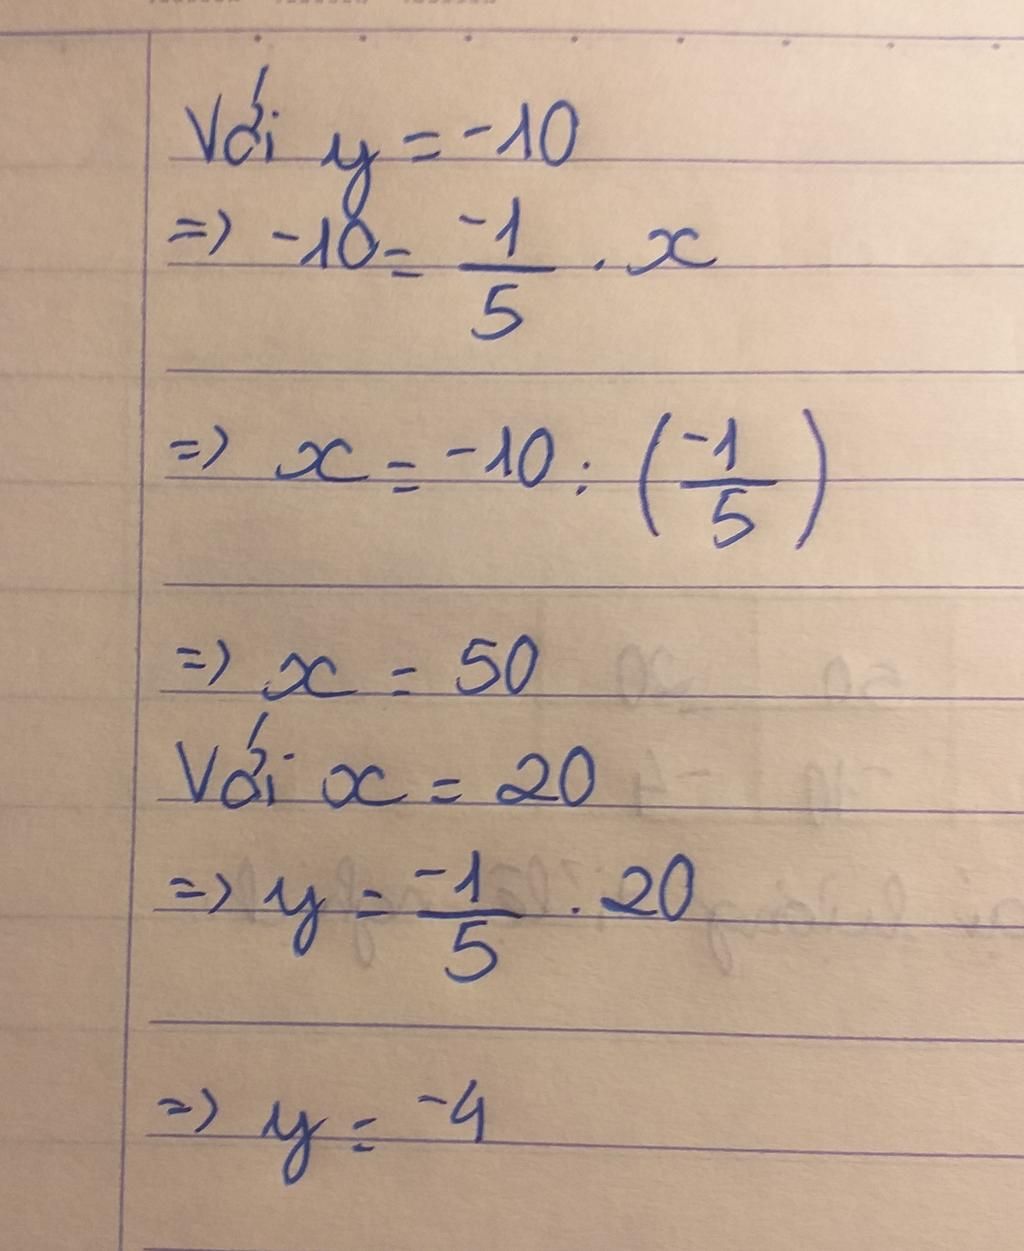 Với y = -10
=> -10 = -1/5 . x
=> x = -10 : (-1/5)
=> x = 50
Với x = 20
=> y = -1/5 . 20
=> y = -4